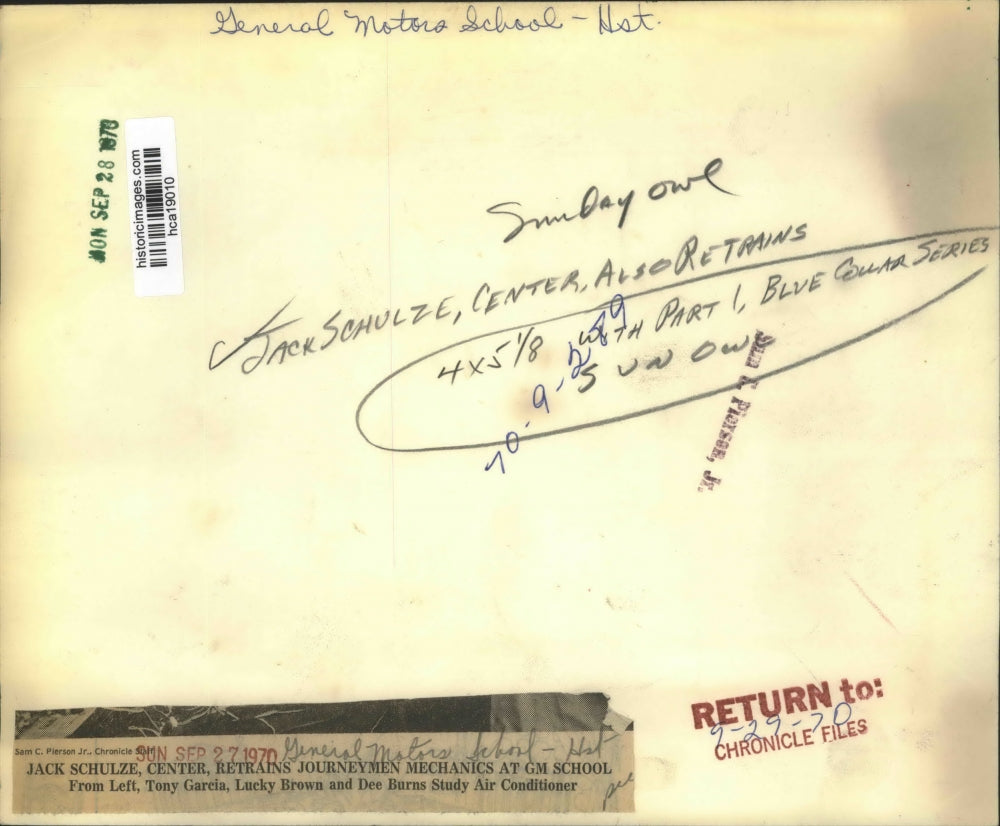 General Motors School - Hst.
MON SEP 28 1970
historicimages.com
hca19010
Sunday owl
JACK SCHULZE, CENTER, ALSO RETRAINS
4x5 1/8 WITH PART 1, BLUE COLLAR SERIES
SUN OWL
70-9-2
Sam C. Pierson, Jr.
RETURN to:
9-29-70
CHRONICLE FILES
Sam C. Pierson Jr., Chronicle Staff
SUN SEP 27 1970
General Motors School - Hst
JACK SCHULZE, CENTER, RETRAINS JOURNEYMEN MECHANICS AT GM SCHOOL
From Left, Tony Garcia, Lucky Brown and Dee Burns Study Air Conditioner